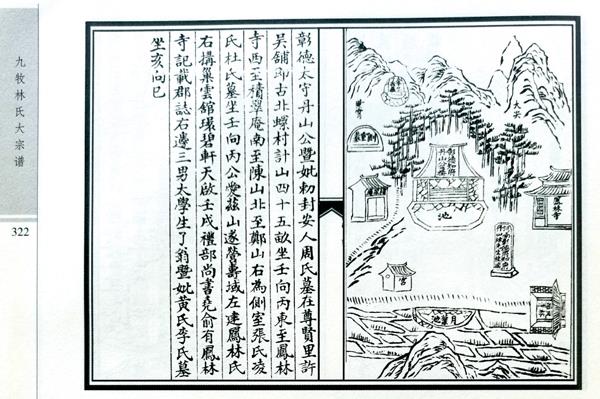 九牧林氏大宗谱
322
彰德太守丹山公暨妣勅封安人周氏墓在尊賢里許
吴舖即古北螺村計山四十五畝坐壬向丙東至鳳林
寺西至積翠庵南至陳山北至鄭山右為側室張氏凌
氏杜氏墓坐壬向丙公愛茲山遂營壽域左建鳳林氏
右搆巢雲舘環碧軒天啟壬戌禮部尚書堯俞有鳳林
寺記載郡誌右邊三男太學生了翁暨妣黃氏李氏墓
坐亥向巳
大尖
池
鳳林寺
宮
月葉池